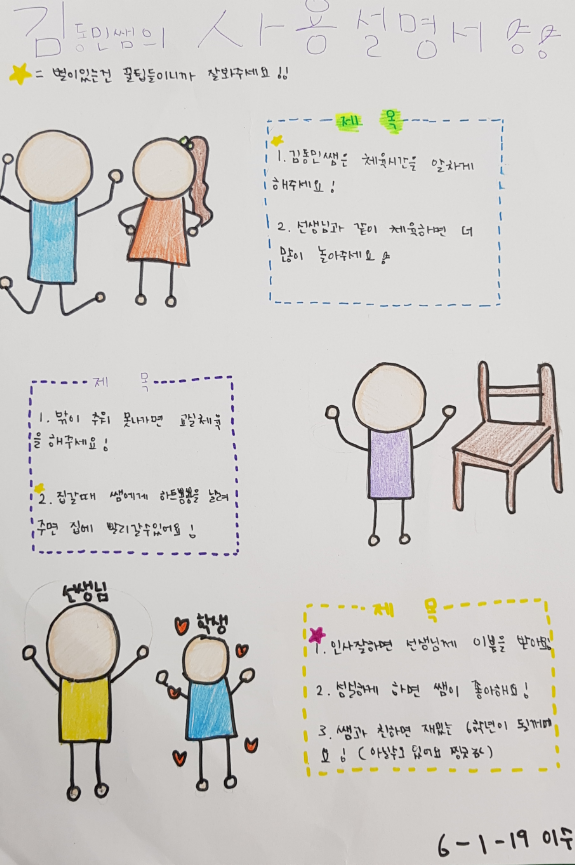 김동민쌤의 사용설명서
= 별이있는건 꿀팁들이니까 잘봐주세요!!
제 목
1. 김동민쌤은 체육시간을 알차게
해주세요!
2. 선생님과 같이 체육하면 더
많이 놀아주세요
제 목
1. 밖이 추워 못나가면 교실체육
을 해주세요!
2. 집갈때 쌤에게 하트뿅뿅을 날려
주면 집에 빨리갈수있어요!
선생님
학생
제 목
1. 인사잘하면 선생님께 이쁨을 받아요!
2. 성실하게 하면 쌤이 좋아해요!
3. 쌤과 친하면 재밌는 6학년이 될거에
요! (아닐수도 있어요 찡긋)
6-1-19 이수